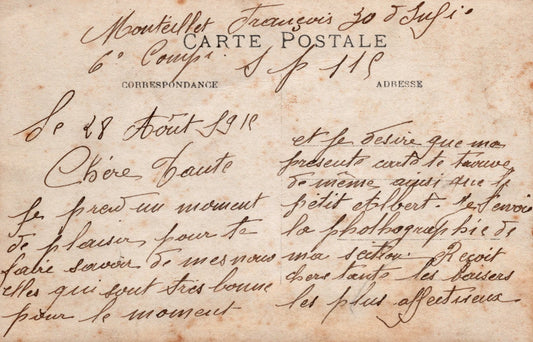 Monteillet François 30 d'Infie
CARTE POSTALE
6e Compi. S P 115
CORRESPONDANCE
ADRESSE
Le 28 Août 1915
Chére Tante
Je prend un moment
de plaisir pour te
faire savoir de mes nouv
elles qui sont très bonne
pour le moment
et je désire que ma
présente carte te trouve
de même ainsi que le
petit Albert. Je t'envoie
la phothographie de
ma section. Reçoit
chere tante les baisers
les plus affectueux